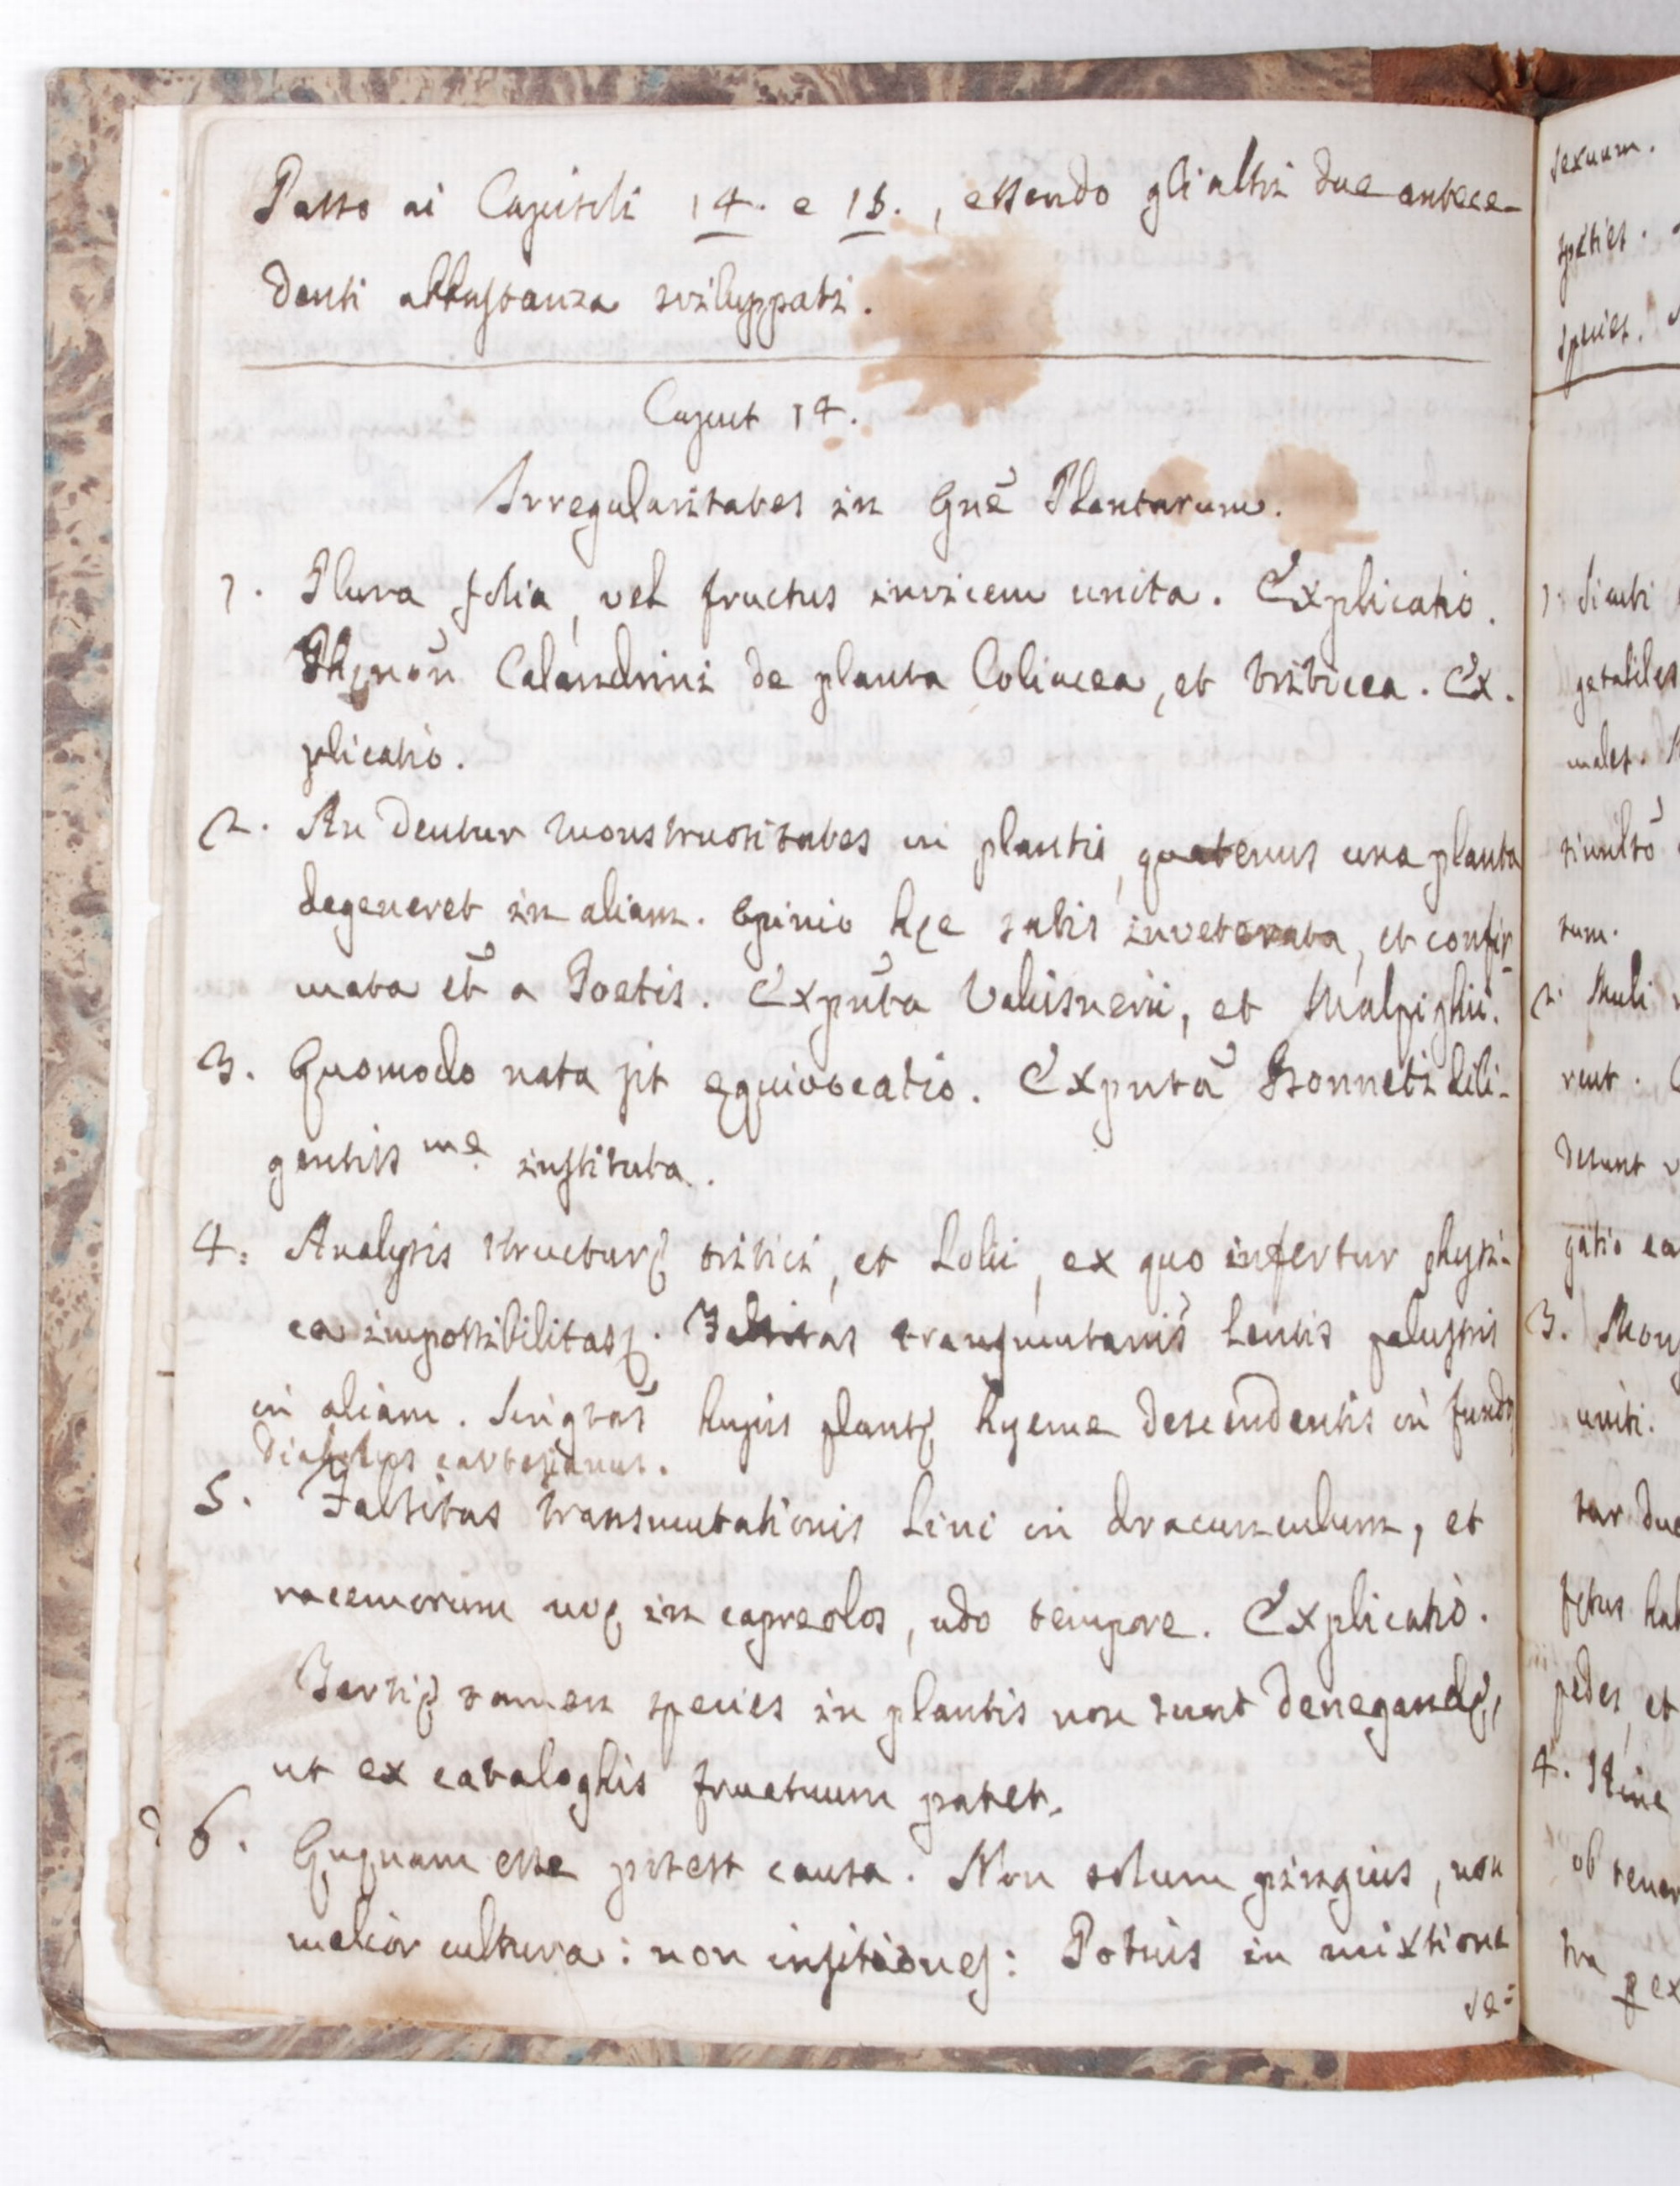 Passo ai Capitoli 14. e 15., essendo gli altri due antece-
denti abbastanza sviluppati.
Caput 14.
Irregularitates in Gnē Plantarum.
1. Plura folia, vel fructus invicem unita. Explicatio.
Phęnōn Calandrini de planta Loliacea, et triticea. Ex-
plicatio.
2. An dentur monstruositates in plantis, quatenus una planta
degeneret in aliam. Opinio hęc satis inveterata, et confir-
mata et̄ a Poetis. Expūta Valisnerii, et Malpighii.
3. Quomodo nata sit ęquivocatio. Expūta Bonneti dili-
gentiss.me instituta.
4. Analysis structurę tritici, et Lolii, ex quo infertur physi-
ca impossibilitas. Falsitas transmutanis̄ Lentis palustris
in aliam. Singtas̄ hujus plantę hyeme descendentis in fundo
Diabolus cartesianus.
5. Falsitas transmutationis Lini in dracunculum, et
racemorum uvę in capreolos, udo tempore. Explicatio.
Tertię tamen species in plantis non sunt denegandę,
ut ex cataloghis fructuum patet.
6. Quęnam esse potest causa. Non solum pinguius, non
melior cultura: non insitiones: Potius in mixtione
se-
sexuum.
species.
species.
1. Sicuti
getabiles
males.
simultō
tum.
2. Muli
rent.
desunt
gatio ea
3. Mons
uniti.
tur due
fętus hab
pedes, et
4. Hinc
ob tener
tra
ex